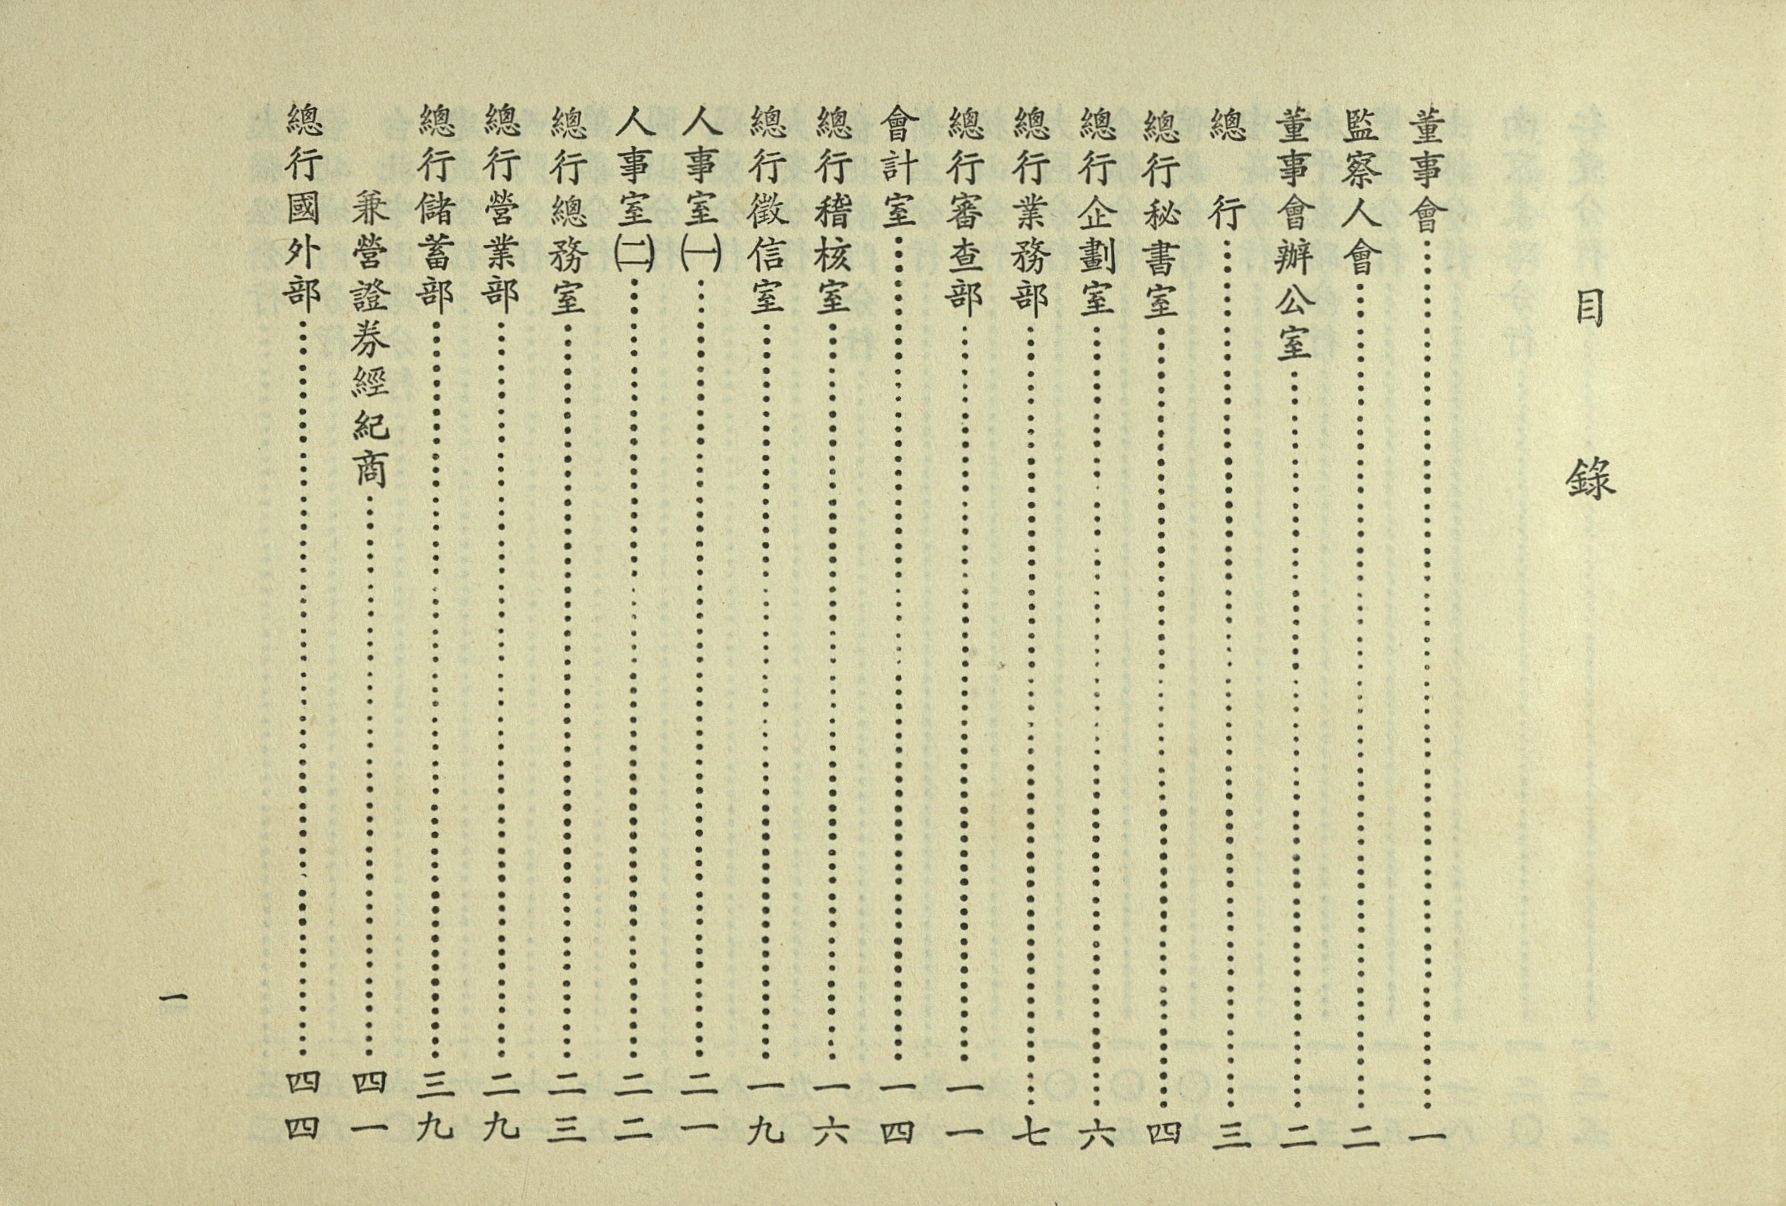 目錄
董事會……一
監察人會……二
董事會辦公室……二
總行……三
總行秘書室……四
總行企劃室……六
總行業務部……七
總行審查部……一一
會計室……一四
總行稽核室……一六
總行徵信室……一九
人事室㈠……二一
人事室㈡……二二
總行總務室……二三
總行營業部……二九
總行儲蓄部……三九
兼營證券經紀商……四一
總行國外部……四四
一